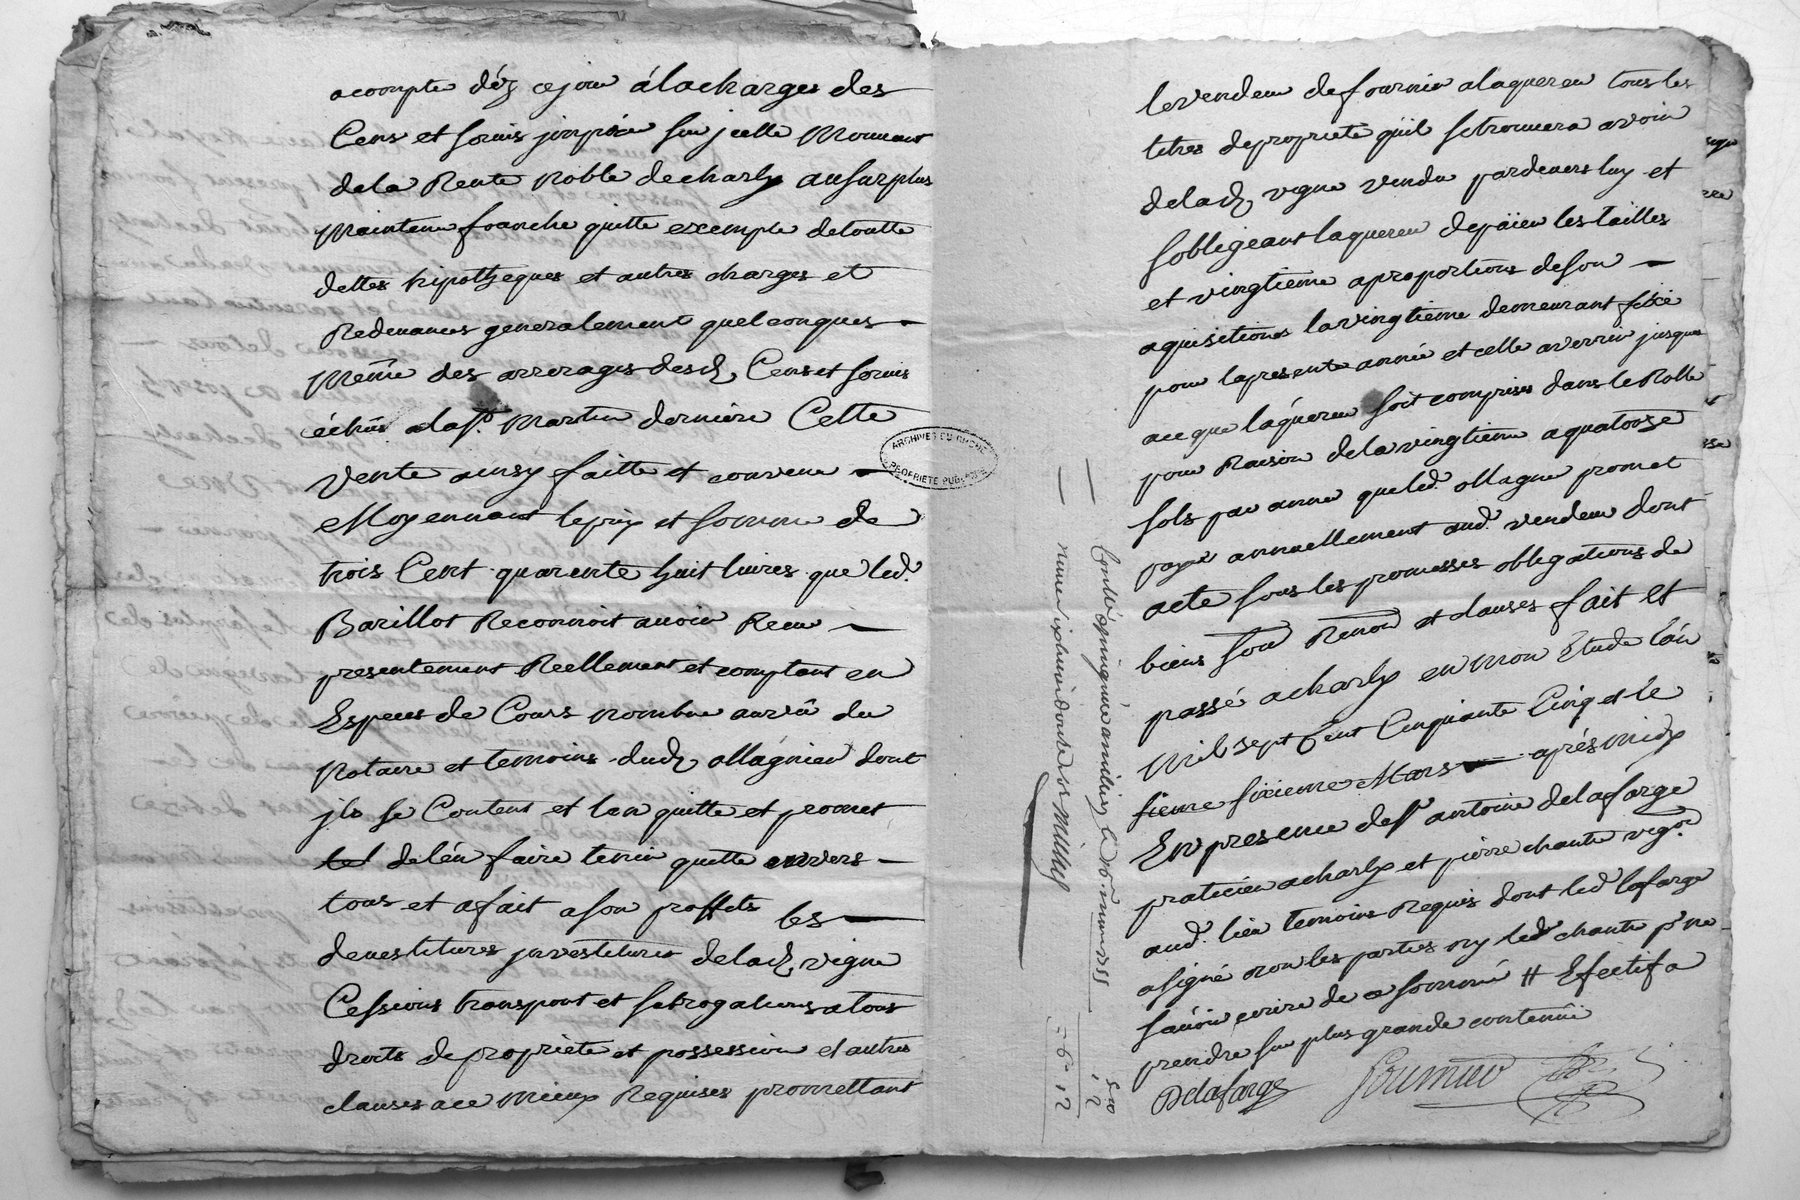 acompte déz cejour álacharges des
Cens et servis jmposéz sur jcelle Mouvant
dela Rente Noble decharly ausurplus
Maintenue franche quitte exempte detoutte
dettes hipotheques et autres charges et
Redevances generalement quelconques
Même des arrerages desd. Cens et servis
échûs alast. Martin derniere Cette
vente ainsy faitte et convenue
Moyennant leprix et somme de
trois Cent quarente huit livres que led.
Barillot Reconnoit avoir Receu
presentement Reellement et comptant en
Especes de Cours nombré auvû du
Notaire et temoins dud. ollagnier dont
jls se Content et len quitte et promet
deléu faire tenir quitte envers
tous et afait ason proffit les
devestitures jnvestitures delad. vigne
Cessions transport et subrogations atous
droits depropriete et possession et autres
clauses ace Mieux Requises promettant
ARCHIVES DU RHONE
PROPRIETE PUBLIQUE
levendeur defournir alaquereur tous les
titres depropriete quil setrouvera avoir
delad. vigne vendue pardevers luy et
sobligeant laquereur depaïer lestailles
et vingtieme aproportions deson
aquisitions lavingtieme demeurant fixé
pour lapresente année et celle avenir jusques
ace que láquereur soit comprises dans le Rolle
pour Raison delavingtieme aquatorze
sols par année queled. ollagnier promet
payer annuellement aud. vendeur dont
acte sous les promesses obligations de
biens soum Renon et clauses fait et
passé acharly en mon Etude l'án
mil sept Cent Cinquante Cinq et le
sieme sixieme Mars aprés midy
En presence des. antoine delafarge
praticien acharly et pierre chante vign.
aud. lieu temoins Requis dont led. lafarge
asigné non les parties ny led. chante p. ne
sávoir ecrire de ce sommé # Efectif a
prendre sur plus grande contenüe
Delafarge
Contlé amillery le 16 mars 1755